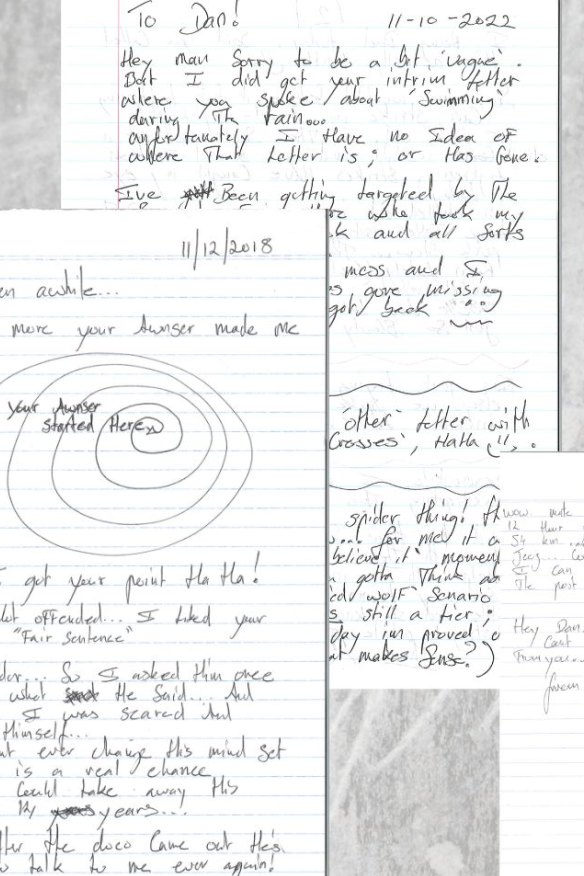 To Dan!
11-10-2022
Hey man Sorry to be a bit 'vague'.
But I did get your intrim letter
where you spoke about 'Swimming'
during The rain...
unfortunately I Have no Idea of
where That Letter is; or Has Gone.
I've Been getting targeted by The
who took my
and all Sorts
mess and I
s gone missing
got back
'other' letter with
Crosses', HaHa
spider thing!, th
... for me it a
believe it' momen
gotta Think as
ed wolf Senario
s still a tier;
day im proved o
at makes Sense?)
11/12/2018
en awhile...
more your Awnser made me
your Awnser
Started Here
I got your point Ha Ha!
ot offended... I Liked your
"Fair Sentence"
der... So I asked Him once
what He Said... And
I was Scared And
Himself...
ut ever change His mind Set
is a real chance
Could take away His
years...!
fter the doco Came out He's
o talk to me ever again!
wow mate
12 Hour
54 km
Jeez... Co
I can
The post
Hey Dan,
Cant
From you...